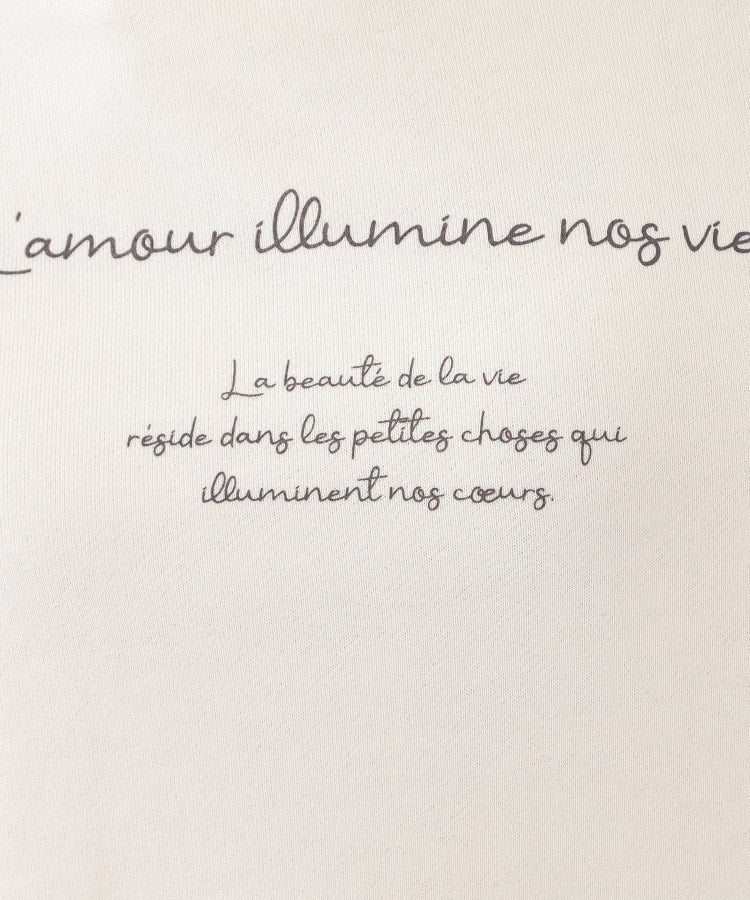 L'amour illumine nos vie
La beauté de la vie
réside dans les petites choses qui
illuminent nos cœurs.